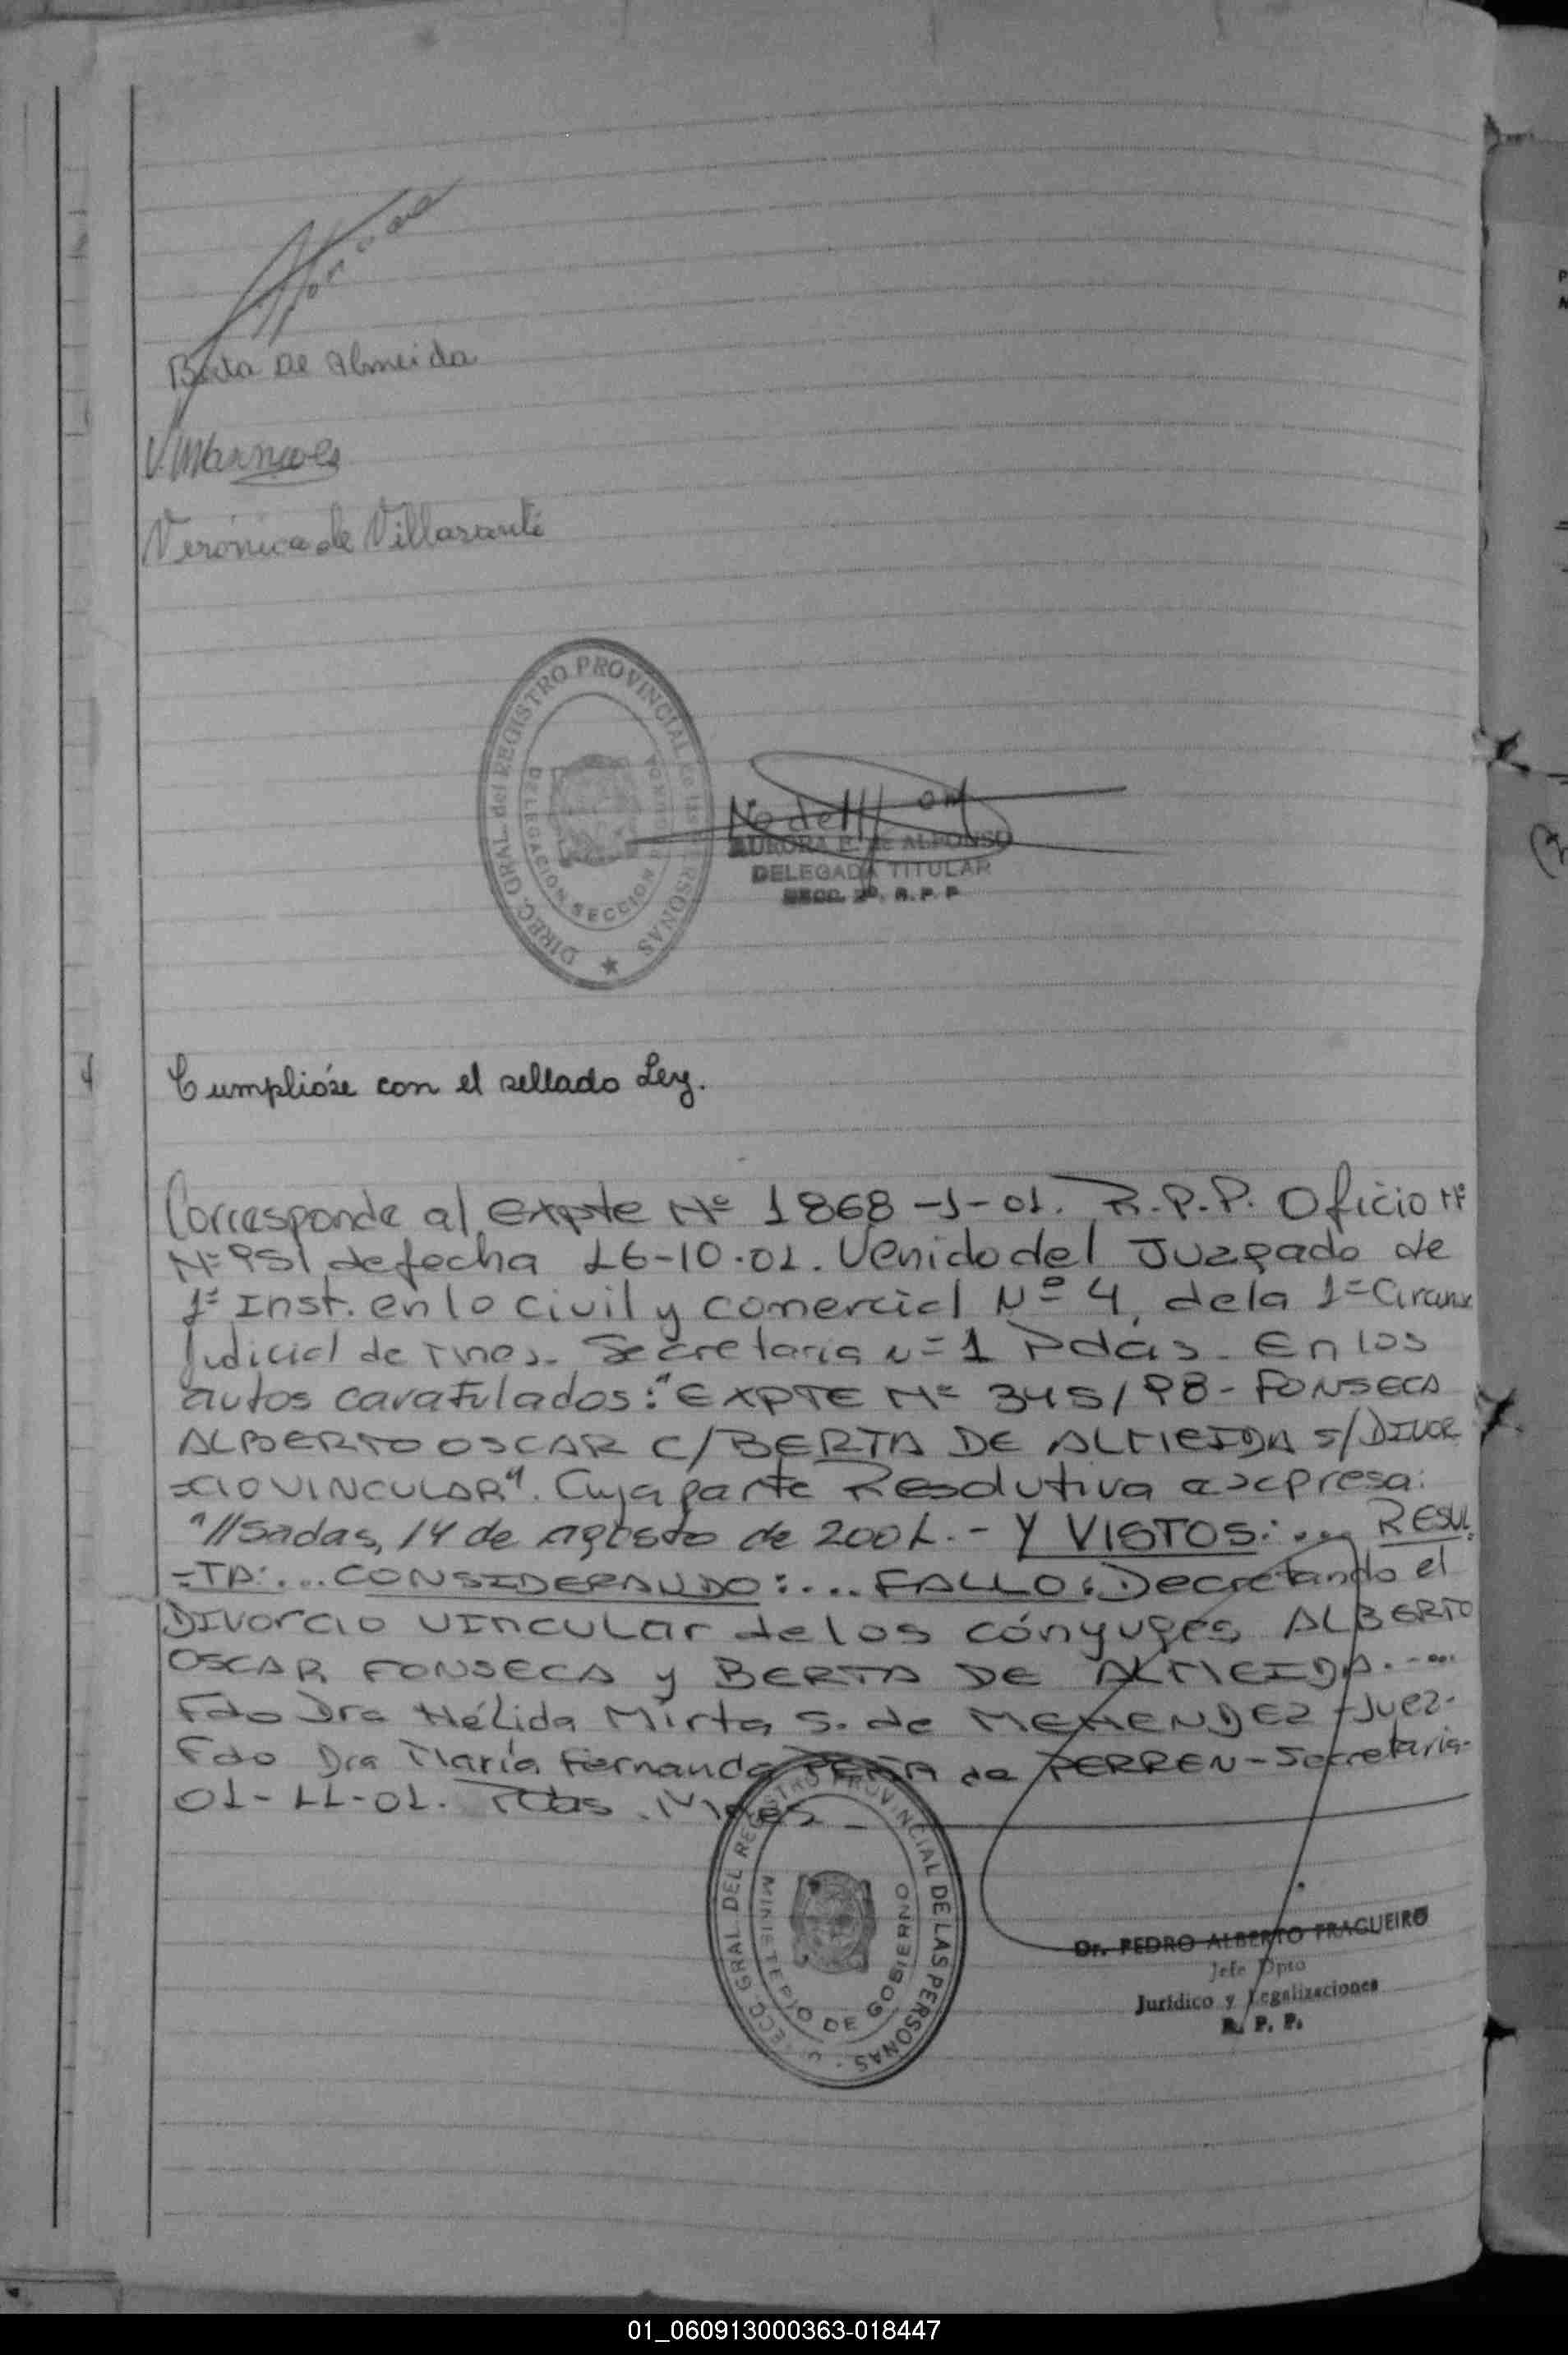 Berta de Almeida
Verónica de Villasanti
DIREC. GRAL. del REGISTRO PROVINCIAL de las PERSONAS
DELEGACION SECCION
AURORA E. de ALFONSO
DELEGADA TITULAR
SECC. 2º. R.P.P
Cumplióse con el sellado Ley.
Corresponde al Expte Nº 1868-J-01. R.P.P. Oficio Nº
Nº 951 de fecha 16-10-01. Venido del Juzgado de
1ª Inst. en lo civil y comercial Nº 4, de la 1ª Circuns
Judicial de Mnes. Secretaria Nº 1 Pdas. En los
autos caratulados: "EXPTE Nº 345/98 - FONSECA
ALBERTO OSCAR C/ BERTA DE ALMEIDA S/ DIVOR
=CIO VINCULAR". Cuya parte Resolutiva expresa:
"//sadas, 14 de Agosto de 2001. - Y VISTOS:... RESUL
=TA:... CONSIDERANDO:... FALLO: Decretando el
Divorcio Vincular de los cónyuges ALBERTO
OSCAR FONSECA y BERTA DE ALMEIDA. -...
Fdo Dra Hélida Mirta S. de MENENDEZ - Juez-
Fdo Dra María Fernanda PEÑA de PERREN - Secretaria-
01-11-01. Pdas. Mnes -
DIRECC. GRAL. DEL REGISTRO PROVINCIAL DE LAS PERSONAS
MINISTERIO DE GOBIERNO
Dr. PEDRO ALBERTO FRAGUEIRO
Jefe Dpto
Jurídico y Legalizaciones
R. P. P.
01_060913000363-018447